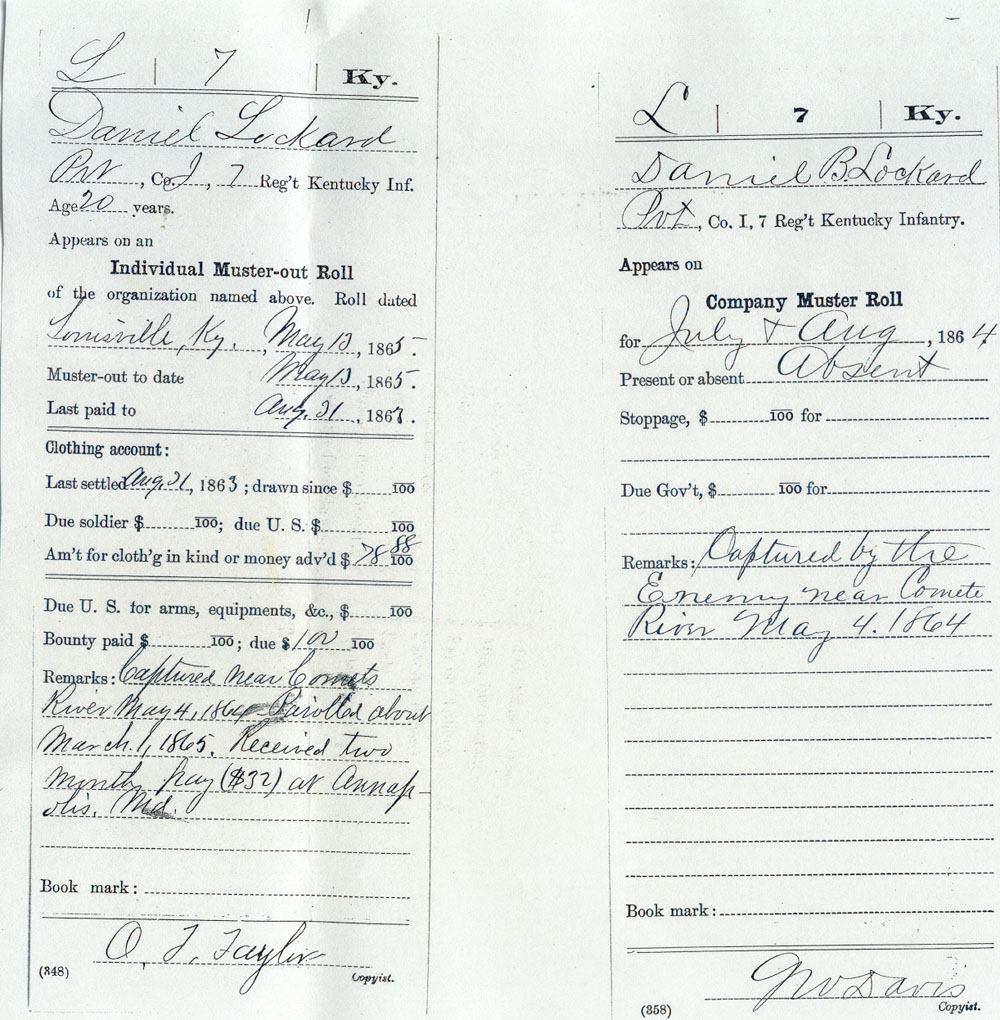 L | 7 | Ky.
Daniel Lockard
Pvt, Co. I, 7 Reg't Kentucky Inf.
Age 20 years.
Appears on an
Individual Muster-out Roll
of the organization named above. Roll dated
Louisville, Ky., May 13, 1865.
Muster-out to date May 13, 1865.
Last paid to Aug. 31, 1863.
Clothing account:
Last settled Aug. 31, 1863; drawn since $ 100
Due soldier $ 100; due U. S. $ 100
Am't for cloth'g in kind or money adv'd $ 78 88/100
Due U. S. for arms, equipments, &c., $ 100
Bounty paid $ 100; due $ 100 100
Remarks: Captured near Comets
River May 4, 1864 Parolled about
March. 1, 1865. Received two
months pay ($32) at Annap-
olis. Md.
Book mark:
O. T. Taylor
(348) Copyist.
L | 7 | Ky.
Daniel B. Lockard
Pvt, Co. I, 7 Reg't Kentucky Infantry.
Appears on
Company Muster Roll
for July & Aug, 1864
Present or absent Absent
Stoppage, $ 100 for
Due Gov't, $ 100 for
Remarks: Captured by the
Enemy near Comete
River May 4. 1864
Book mark:
Davis
(358) Copyist.